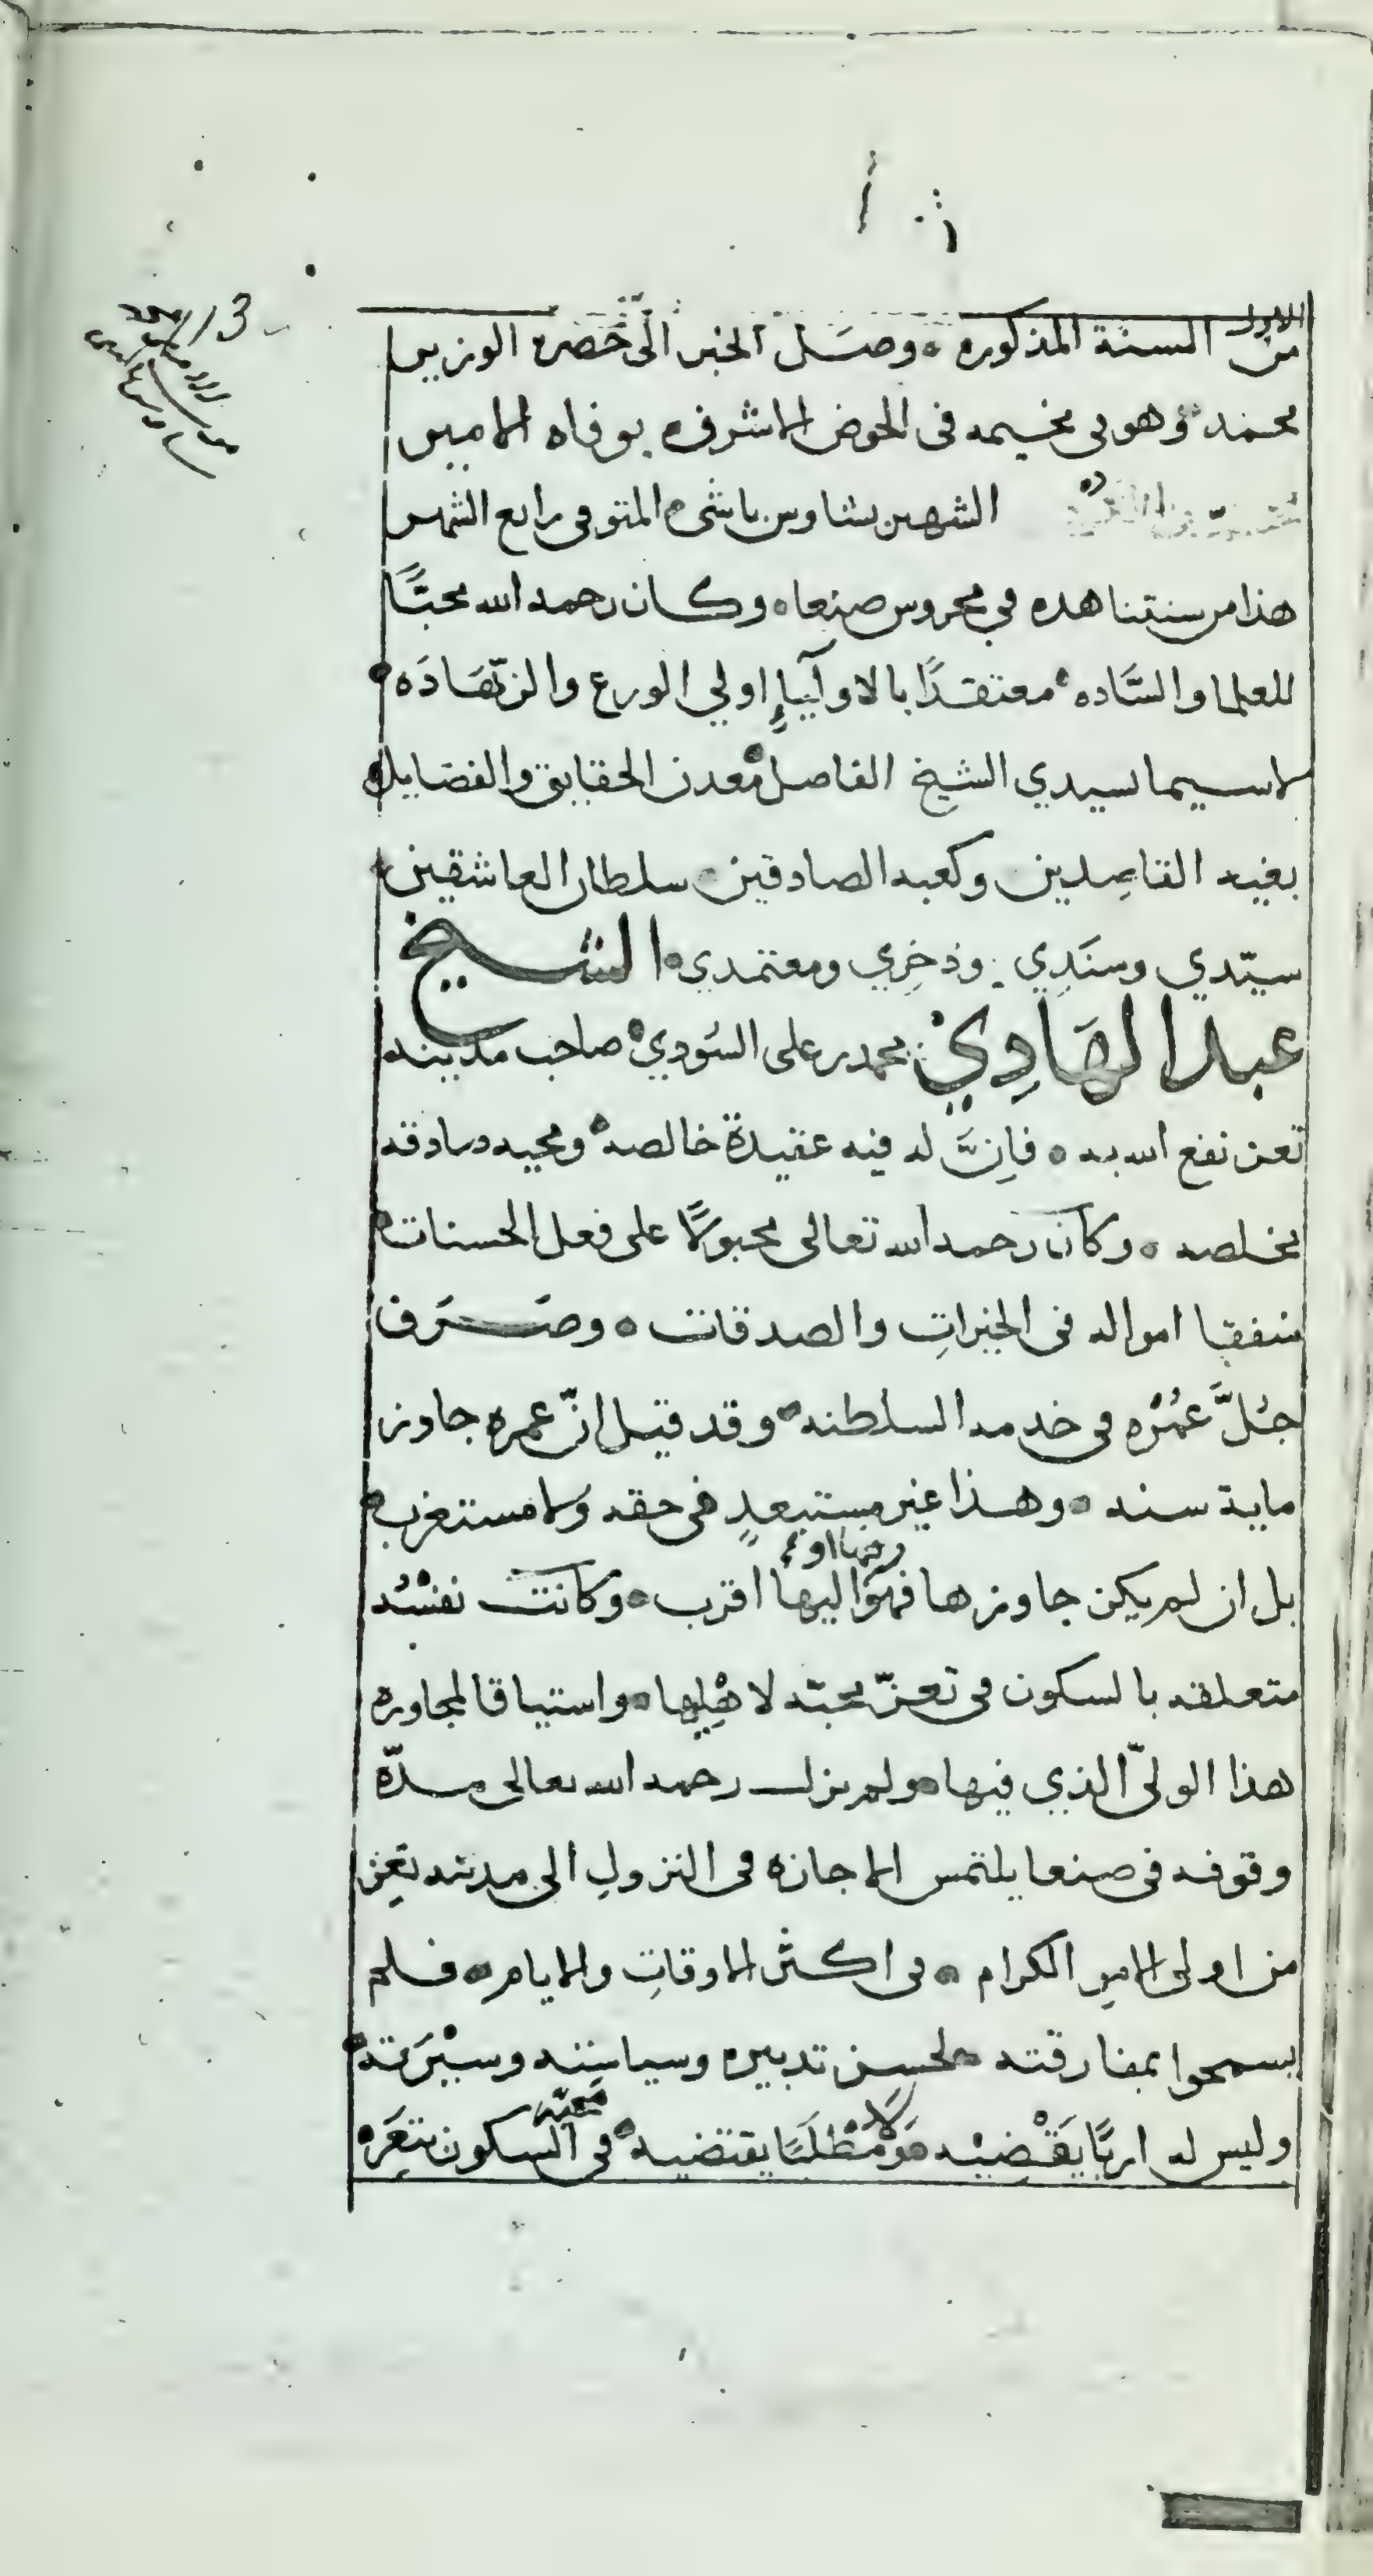 الاول
من السنة المذكوره ه وصَل الخبر الى حَضره الوزير
محمد وهو في مخيمه في الحوض الاشرف بوفاه الامير
الشهير بشاوس باشى المتوفى رابع الشهر
هذا من سنتنا هذه في محروس صنعا ه وكان رحمه الله محبًّا
للعلما والسَّاده ه معتقدًا بالاوليآءِ اولي الورع والزّهَادَه ه
لاسيما لسيدي الشيخ الفاضل ه معدن الحقايق والفضايل ه
بغيه القاصِدين وكعبه الصادقين ه سلطان العاشقين
سيّدي وسنَدِي وذخرِي ومعتمدي ه الشيخ
عبد الهَادِيْ بن محمد بن على السُودي ه صاحب مدينه
تعز نفع الله به ه فاِنَّ له فيه عقيدة خالصه ه ومحبه صادقه
مخلصه ه وكان رحمه الله تعالى مجبولًا على فعل الحسنات ه
منفقا امواله في الخيراتِ والصدقات ه وصَرَف
جُلَّ عمُرُه في خدمه السلطنه ه وقد قيل انّ عمره جاوز
ماية سنه ه وهذا غير مستبعدٍ في حقه ولا مستغرب ه
بل ان لم يكن جاوزها فهوَ اليها اقرب ه وكانت نفسُه
متعلقه بالسكون في تعزّ محبّه لاهْلِها ه واشتياقا لمجاوره
هذا الوليّ الذي فيها ه ولم يزل رحمه الله تعالى مدّة
وقوفه في صنعا يلتمس الاجازه في النزولِ الى مدينه تعز
من اولى الامرِ الكرام ه في اكثر الاوقاتِ والايام ه فلم
يسمحوا بمفارقته ه لحسن تدبيره وسياسته وسيْرَته ه
وليس له اربًا يقَضيْه ه ولا مَطْلَبًا يقتضيه ه في السكون بتعَز ه
محبّه